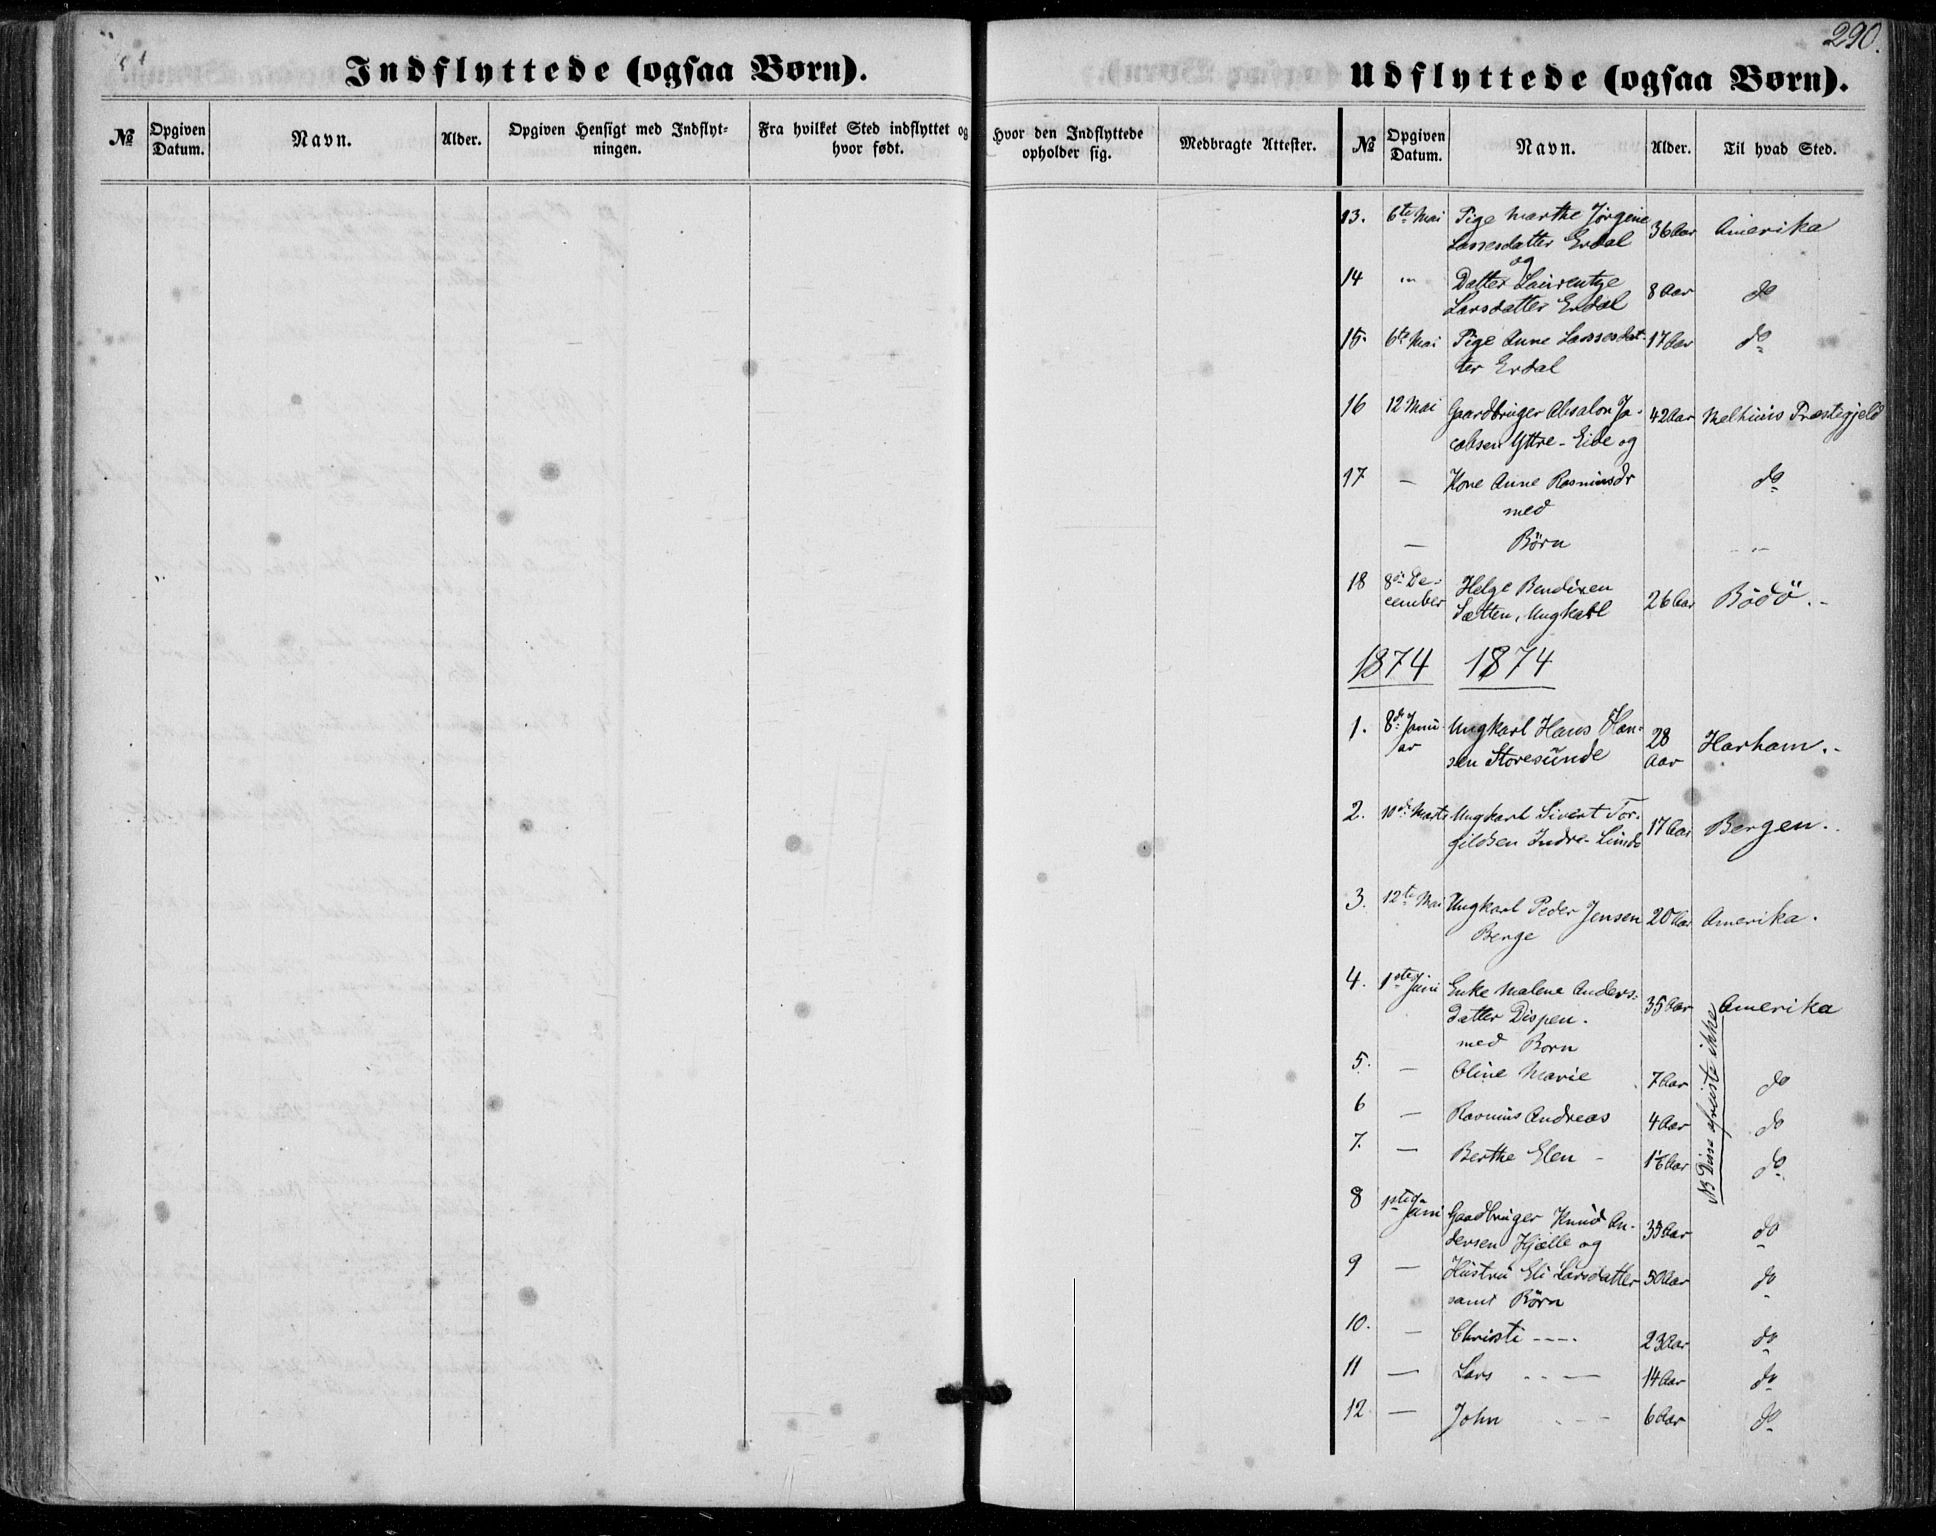 290.
Indflyttede (ogsaa Børn).
Udflyttede (ogsaa Børn).
№ Opgiven Datum. Navn. Alder. Opgiven Hensigt med Indflytningen. Fra hvilket Sted indflyttet og hvor født. Hvor den Indflyttede opholder sig. Medbragte Attester. № Opgiven Datum. Navn. Alder. Til hvad Sted.
13. 6te Mai Pige Marthe Jørgine 36 Aar Amerika
Lassesdatter Erdal
og
14 " Datter Laurentze 8 Aar do
Larsdatter Erdal
15. 6te Mai Pige Anne Lassesdat- 17 Aar do
ter Erdal
16 12 Mai Gaardbruger Absalon Ja- 42 Aar Melhuus Præstegjeld
cobsen Yttre-Eide og
17 — Kone Anne Rasmusdr do
med
— Børn " "
18 8de De- Helge Bendixen 26 Aar Bödö.-
cember Sætten, Ungkarl
1874 1874
1. 8de Janu- Ungkarl Hans Han- 28 Harham.-
ar sen Storesunde Aar
2. 10de Marts Ungkarl Sivert Tor- 17 Aar Bergen.
gildsen Indre-Lunde
3. 12te Mai Ungkarl Peder Jensen 20 Aar Amerika.
Berge
4. 1ste Juni Enke Malene Anders- 35 Aar Amerika
datter Dispen.
med Born
5. — Oline Marie 7 Aar do
6 — Rasmus Andreas 4 Aar do
7. — Berthe Elen - Aar do
NB Disse afreiste ikke
8 1ste Juni Gaardbruger Knud An- Aar do
dersen Hjelle og
9 — Hustru Eli Larsdatter 50 Aar do
samt Börn
10. — Christi ---- 23 Aar do
11 — Lars - - — 14 Aar do
12 — John - - - 6 Aar do